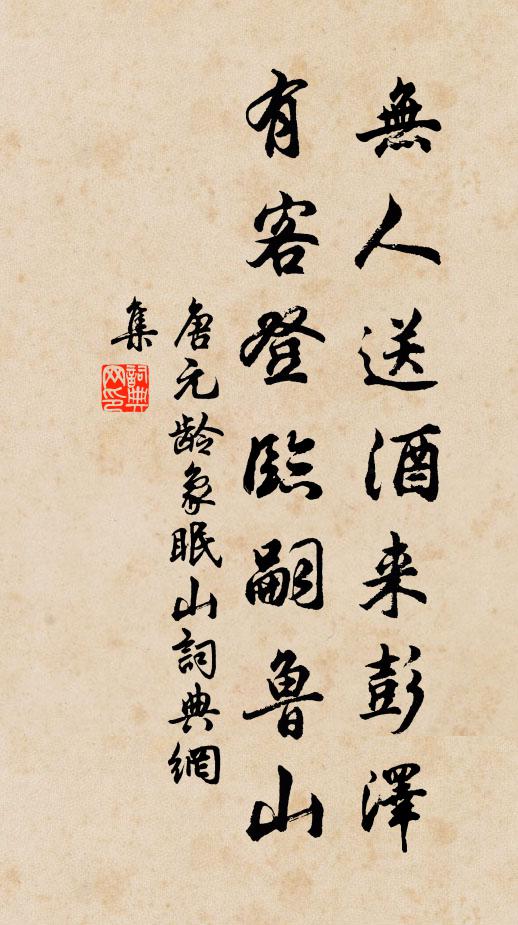 無人送酒来彭澤
有客登臨嗣魯山
唐元龄象眠山詞典網
集
詞典
网印